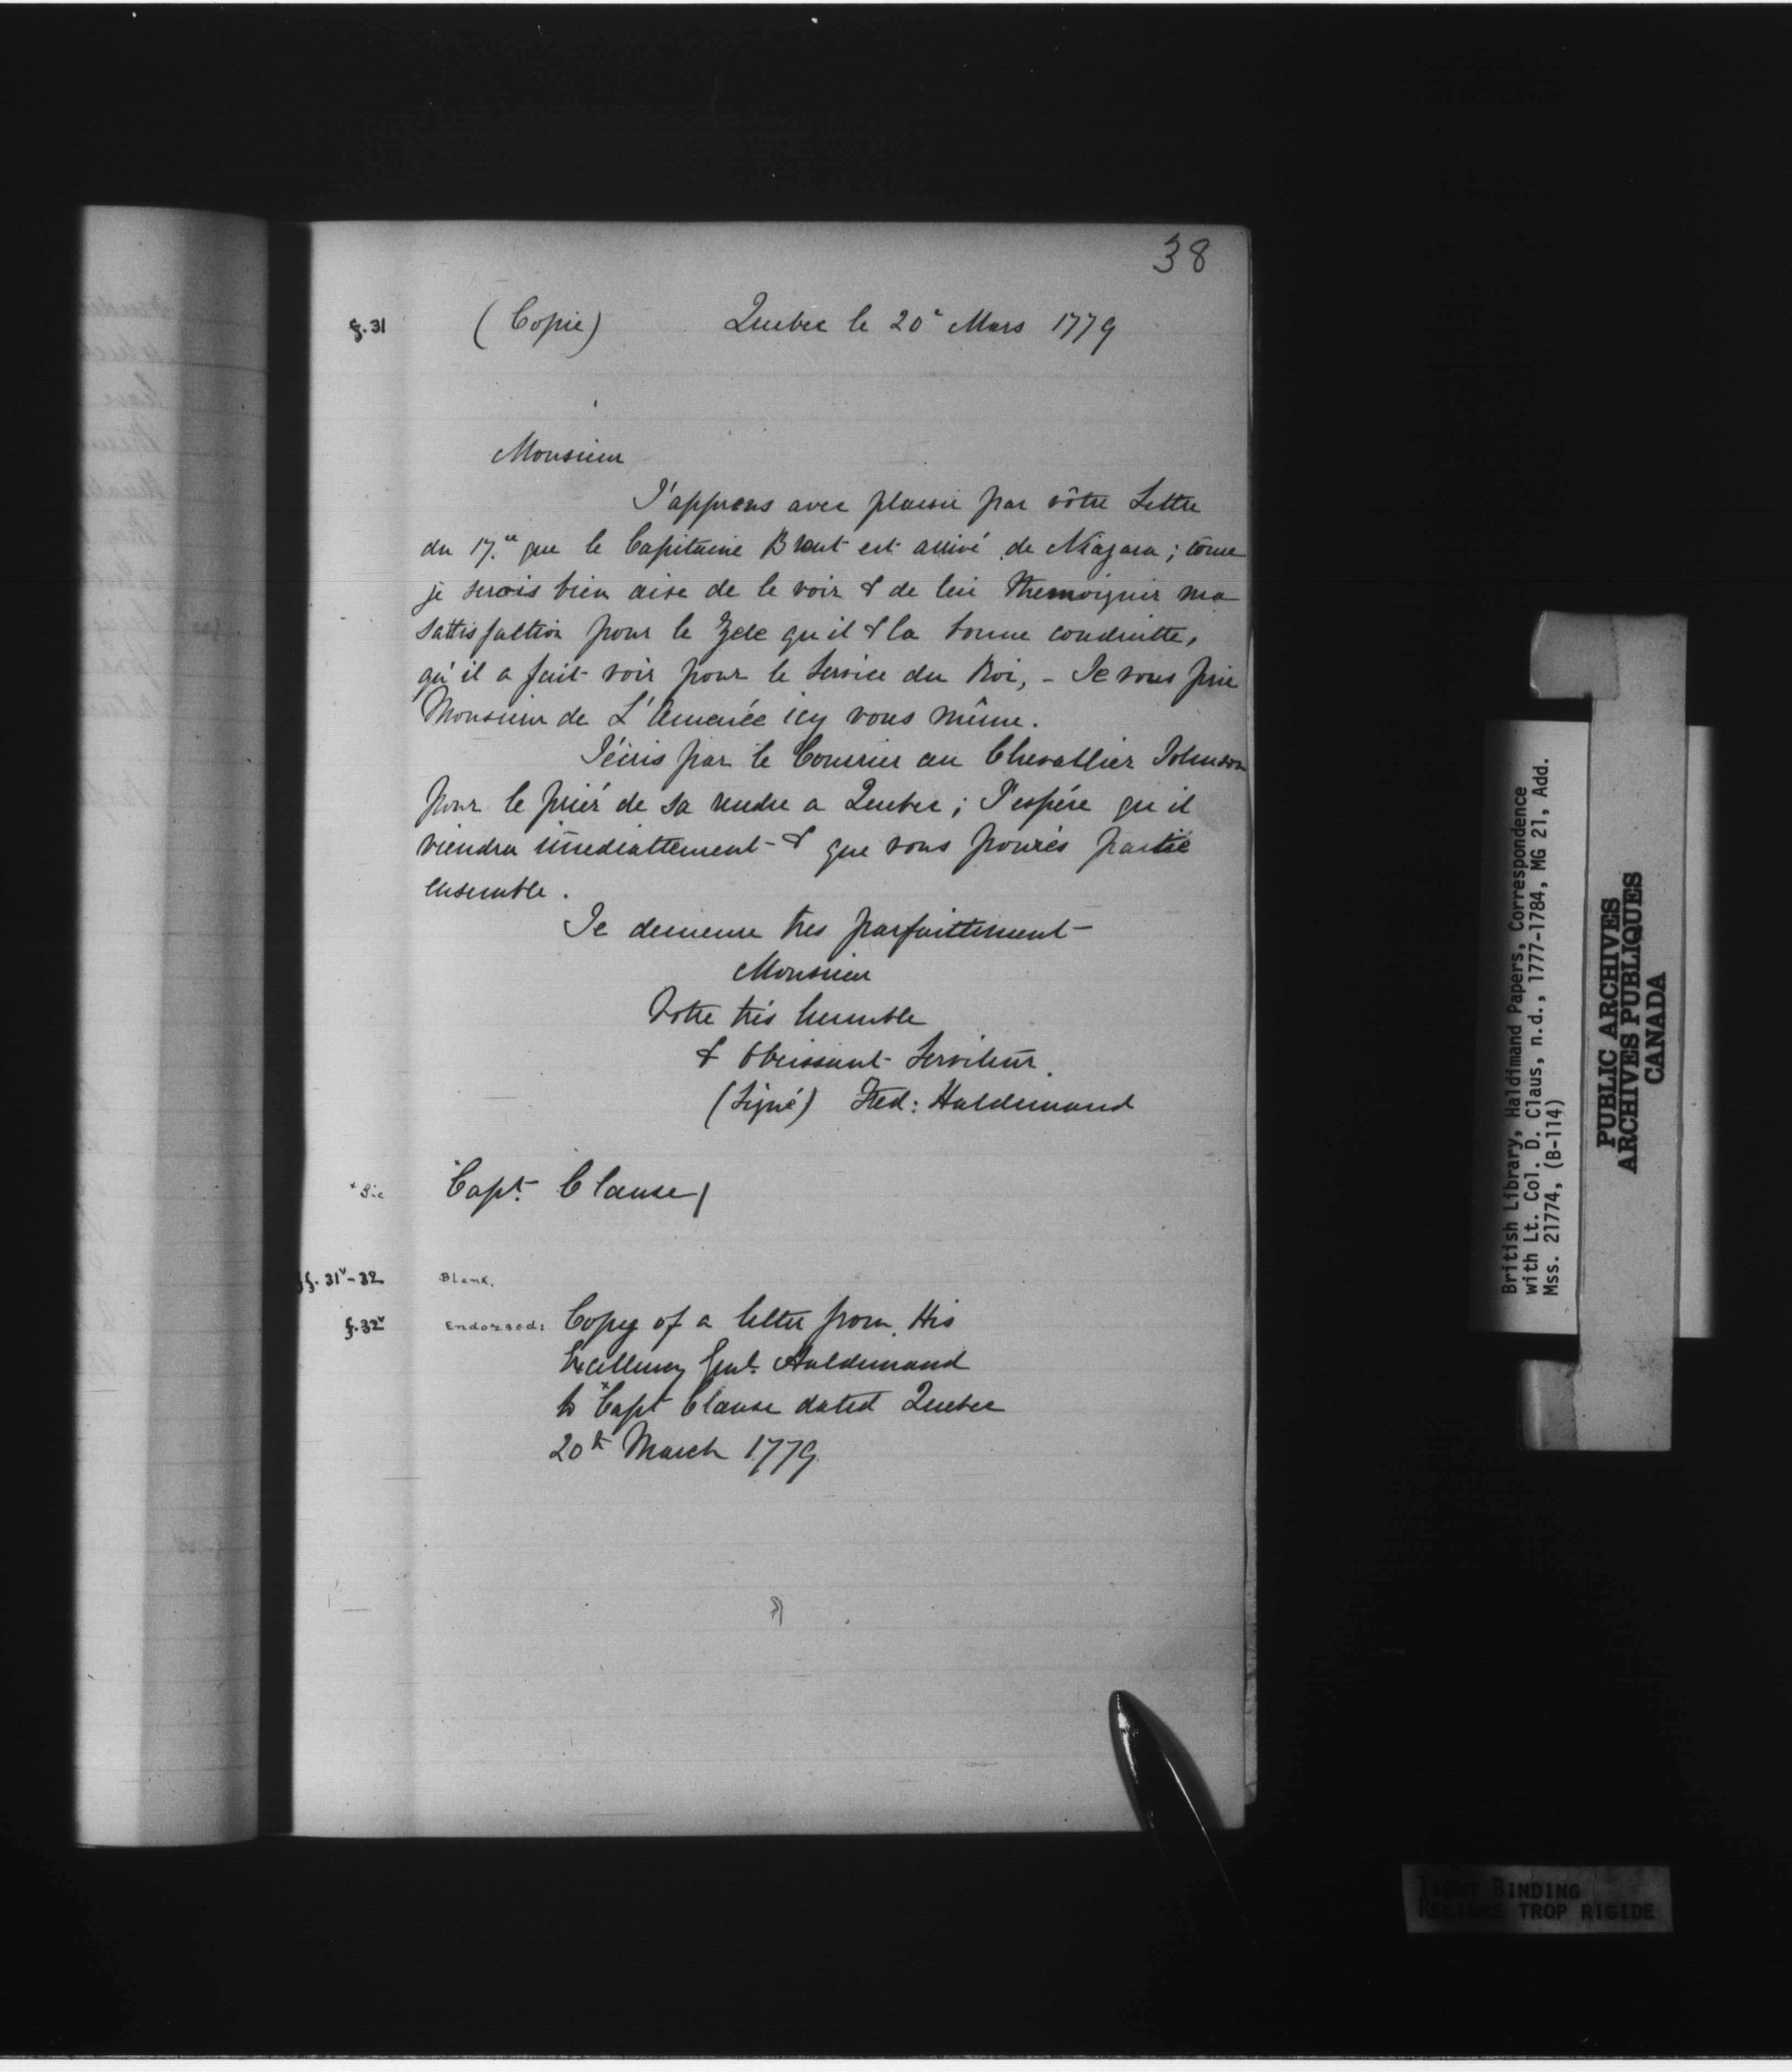 38
f.31 (Copie) Quebec le 20e Mars 1779
Monsieur
J'apprens avec plaisir par vôtre Lettre
du 17.e que le Capitaine Brant est arrivé de Niagara; cōme
je serois bien aise de le voir & de lui themoignier ma
sattisfaltion pour le Zele qu'il & la bonne conduitte,
qu'il a fait voir pour le Service du Roi, - Je vous prie
Monsieur de L'Amenée icy vous même.
J'écris par le Courrier au Chevallier Johnson
pour le priér de sa rendre a Quebec; J'espére qu'il
viendra im̄ediattement - & que vous pouriés partié
ensemble.
Je demeure tres parfaittement -
Monsieur
Votre trés humble
& Obeissant Serviteur.
(Signé) Fred: Haldimand
+ Sic +Capt. Clause/
ff. 31v-32 Blank.
f.32v Endorsed: Copy of a letter from His
Excellency Genl. Haldimand
to +Capt Clause dated Quebec
20th March 1779
British Library, Haldimand Papers, Correspondence
with Lt. Col. D. Claus, n.d., 1777-1784, MG 21, Add.
Mss. 21774, (B-114)
PUBLIC ARCHIVES
ARCHIVES PUBLIQUES
CANADA
TIGHT BINDING
RELIURE TROP RIGIDE